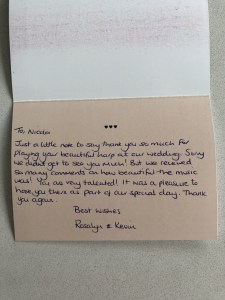 To, Natalia
Just a little note to say thank you so much for
playing your beautiful harp at our wedding. Sorry
we didn't get to see you much! But we received
so many comments on how beautiful the music
was! You are very talented! It was a pleasure to
have you there as part of our special day. Thank
you again.
Best wishes
Rosalyn & Kevin